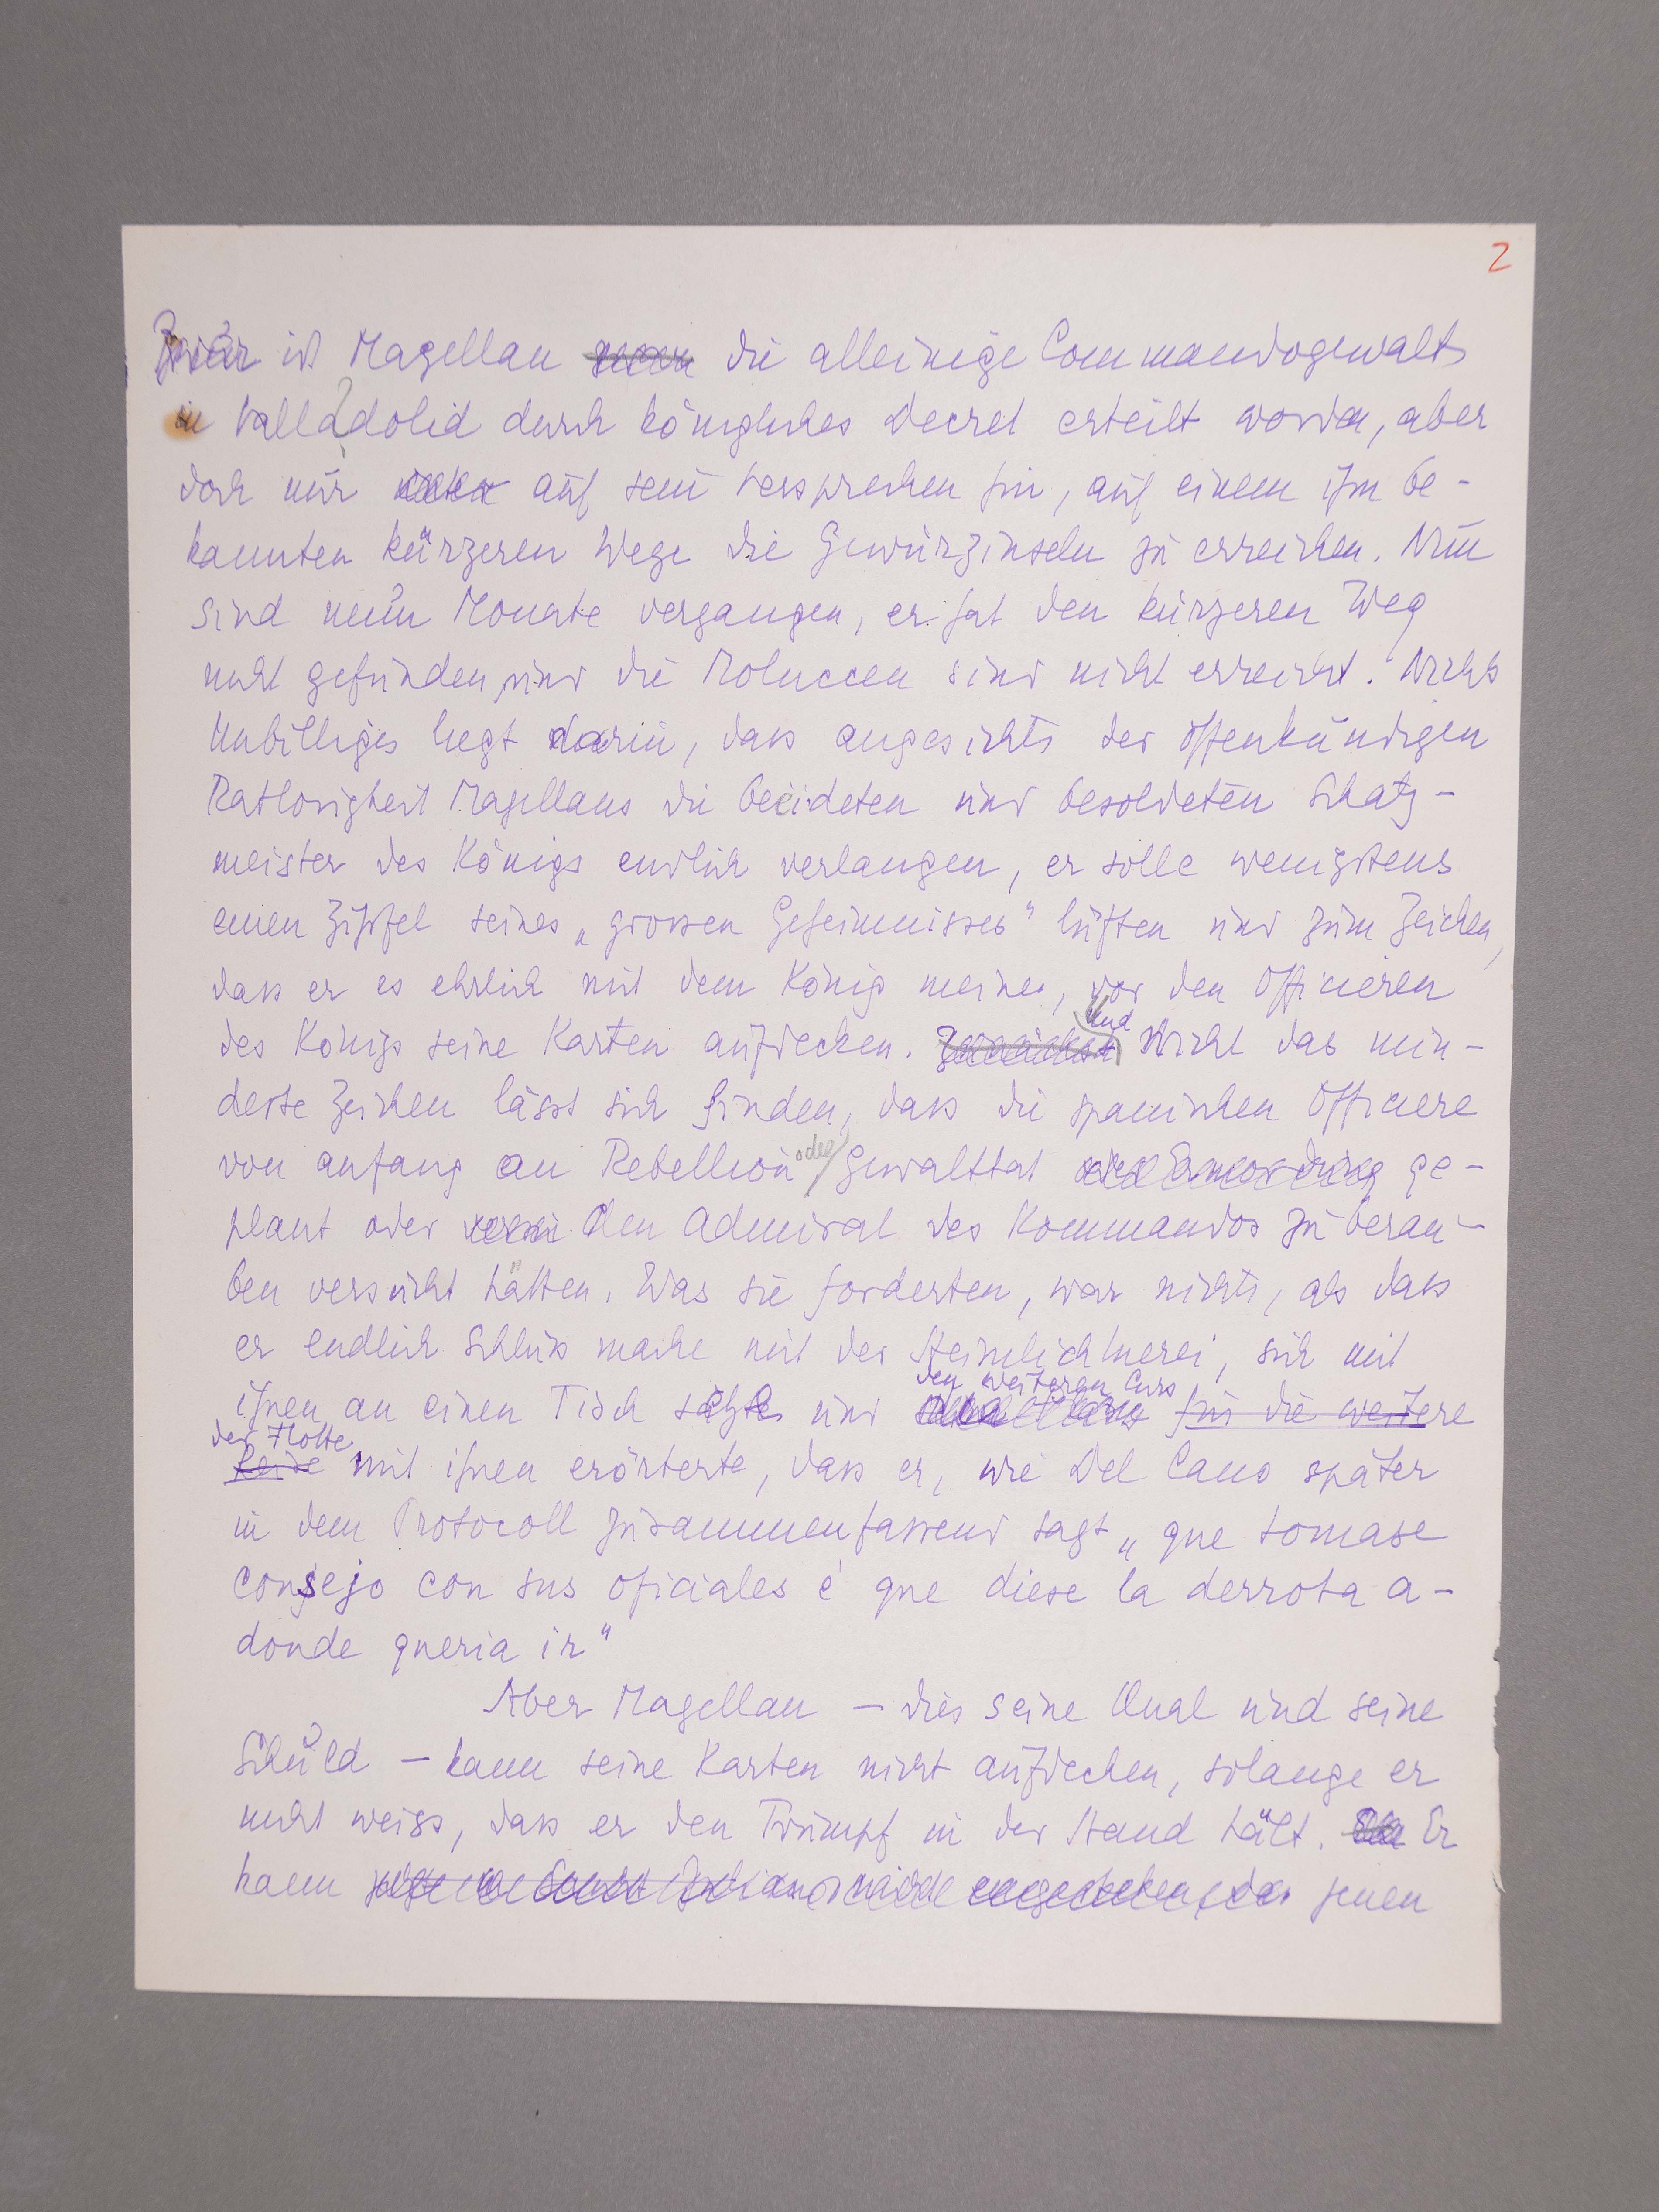 2
Zwar ist Magellan die alleinige Commandogewalt
in Valladolid durch königliches Decret erteilt worden, aber
doch nur auf sein Versprechen hin, auf einem ihm be-
kannten kürzeren Wege die Gewürzinseln zu erreichen. Nun
sind neun Monate vergangen, er hat den kürzeren Weg
nicht gefunden und die Moluccen sind nicht erreicht. Nichts
Unbilliges liegt darin, dass angesichts der offenkundigen
Ratlosigkeit Magellans die beeideten und besoldeten Schatz-
meister des Königs endlich verlangen, er solle wenigstens
einen Zipfel seines „grossen Geheimnisses" lüften und zum Zeichen,
dass er es ehrlich mit dem König meine, vor den Officieren
des Königs seine Karten aufdecken. Und Nicht das min-
deste Zeichen lässt sich finden, dass die spanischen Officiere
von anfang an Rebellion oder Gewalttat ge-
plant oder den Admiral des Kommandos zu berau-
ben versucht hätten. Was sie forderten, war nichts, als dass
er endlich Schluss mache mit der Heimlichtuerei, sich mit
ihnen an einen Tisch setzte und den weiteren Curs für die weitere
der Flotte Reise mit ihnen erörterte, dass er, wie Del Cano später
in dem Protocoll zusammenfassend sagt „que tomase
consejo con sus oficiales é que diese la derrota a-
donde queria ir"
Aber Magellan – dies seine Qual und seine
Schuld – kann seine Karten nicht aufdecken, solange er
nicht weiss, dass er den Trumpf in der Hand hält. Er
kann jenen